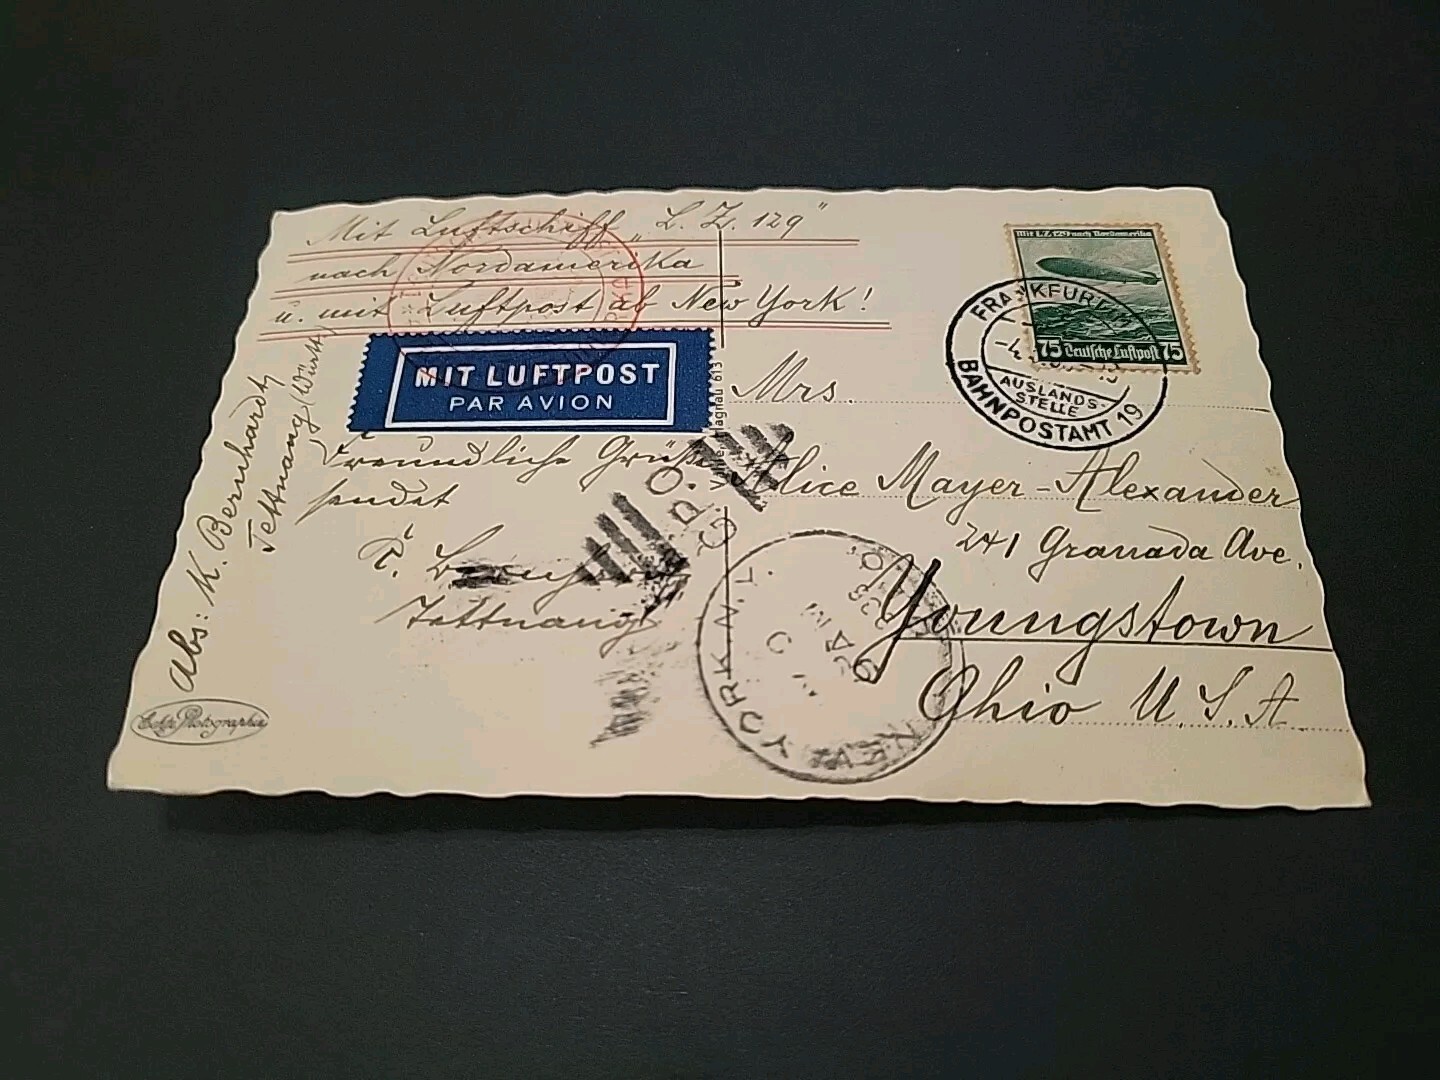 Mit Luftschiff „L.Z. 129"
nach Nordamerika
u. mit Luftpost ab New York!
MIT LUFTPOST
PAR AVION
Freundliche Grüße
sendet
K.
Tettnang
Abs: K. Bernhardt
Tettnang (Württ)
Echte Photographie
Hagnau 613
Mit LZ 129 nach Nordamerika
75 Deutsche Luftpost 75
FRANKFURT
AUSLANDS-
STELLE
BAHNPOSTAMT 19
Mrs.
Alice Mayer-Alexander
241 Granada Ave.
Youngstown
Ohio U.S.A
G.P.O.
NEW YORK, N.Y.